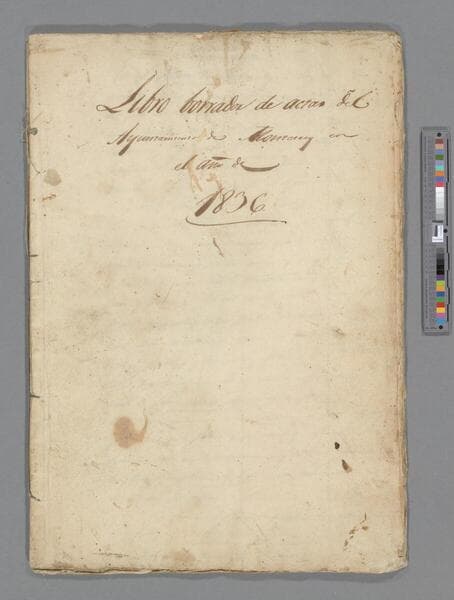 Libro borrador de actas del
Ayuntamiento de Monterrey en
el año de
1836